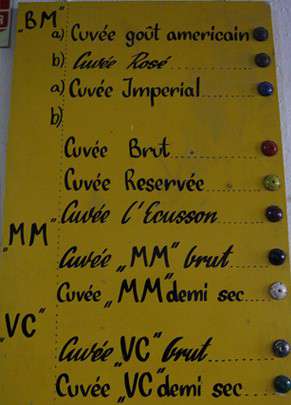 "BM"
a) Cuvée goût americain
b) Cuvée Rosé
a) Cuvée Imperial
b)
Cuvée Brut
Cuvée Reservée
Cuvée l'Ecusson
„MM"
Cuvée „MM" brut
Cuvée „MM" demi sec
„VC"
Cuvée „VC" brut
Cuvée „VC" demi sec